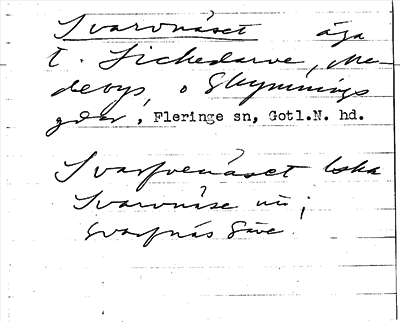 Svarvnäset äga
t. Sickedarve, Me-
debys, o Skymnings
gdar, Fleringe sn, Gotl.N. hd.
Svarfvenäset
Svarvnäse
Svarfnäs